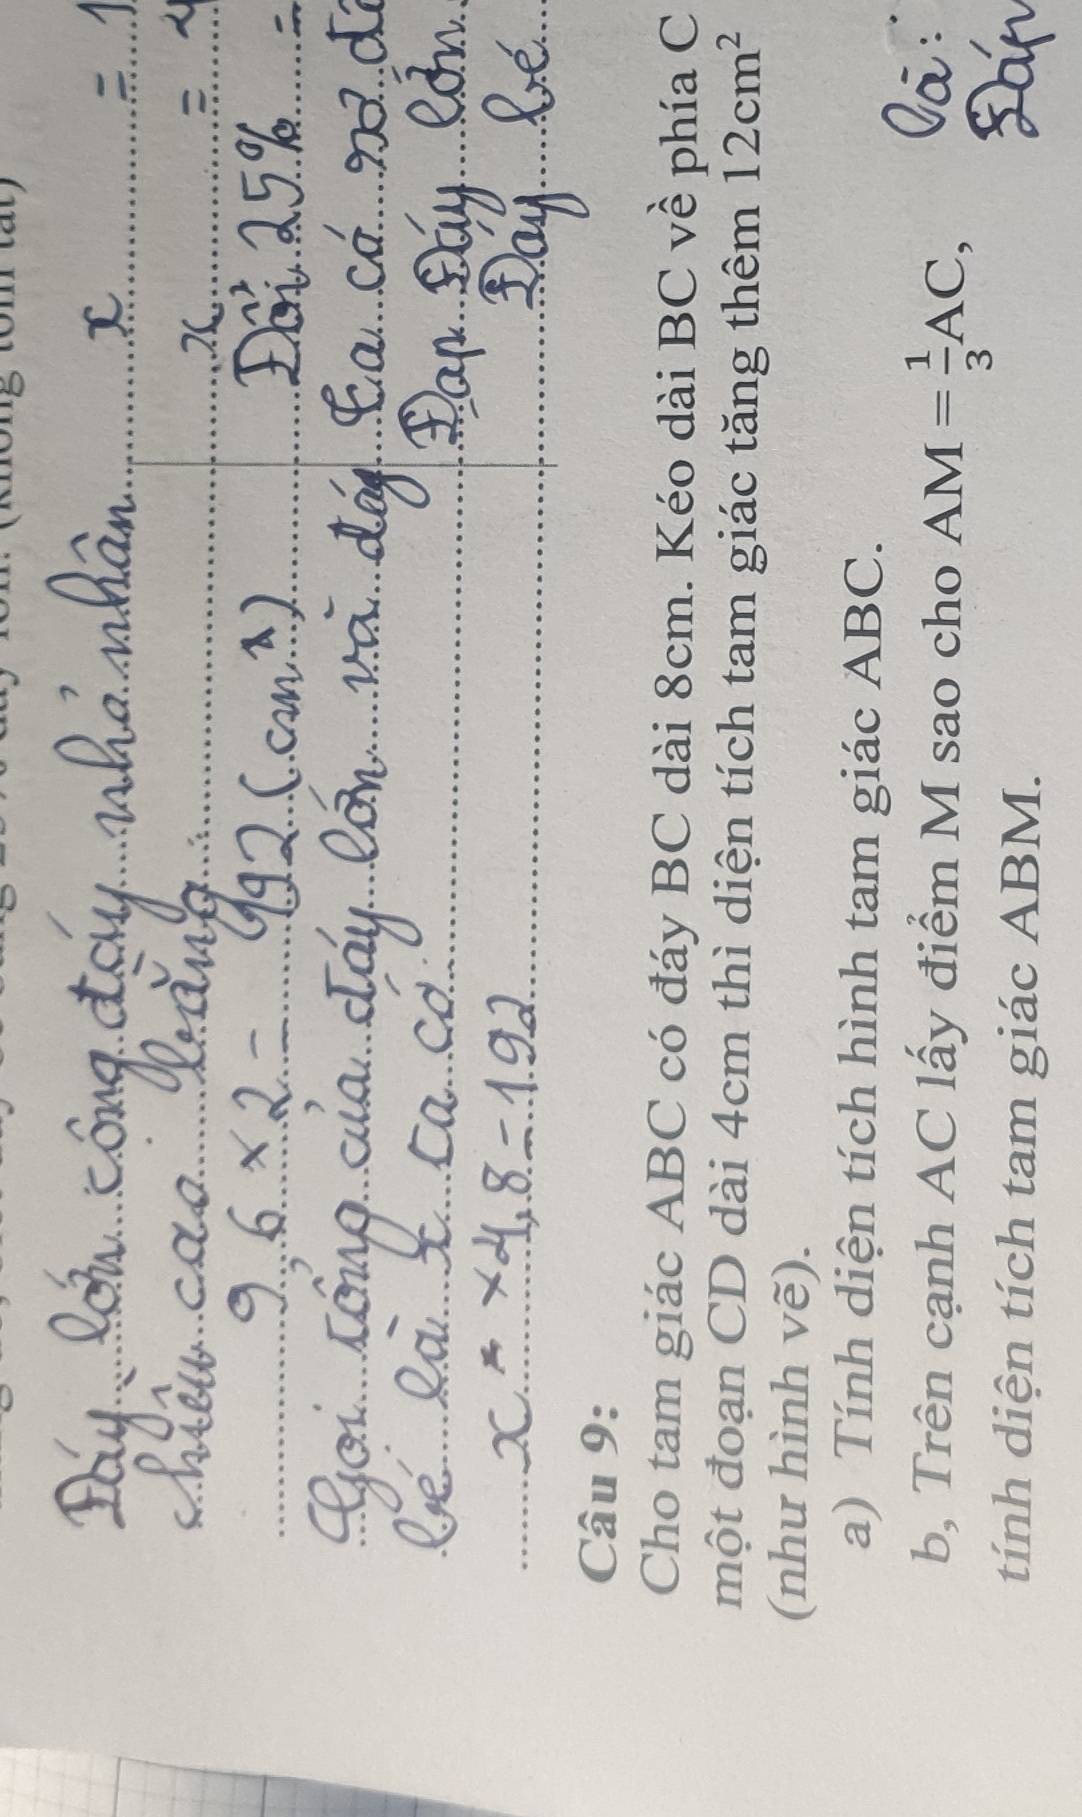 Đáy lớn cộng đáy nhỏ nhân
chiều cao bằng:
9,6 x 2 = 192 (cm²)
Gọi tổng của đáy lớn và đáy
bé là x ta có
x x 4,8 = 192
x = 1
x =
Đổi 25% =
Ta có sơ đồ
Đáp Đáy lớn
Đáy bé
Câu 9:
Cho tam giác ABC có đáy BC dài 8cm. Kéo dài BC về phía C
một đoạn CD dài 4cm thì diện tích tam giác tăng thêm 12cm²
(như hình vẽ).
a) Tính diện tích hình tam giác ABC.
b, Trên cạnh AC lấy điểm M sao cho AM = 1/3 AC,
tính diện tích tam giác ABM.
là:
Đáp